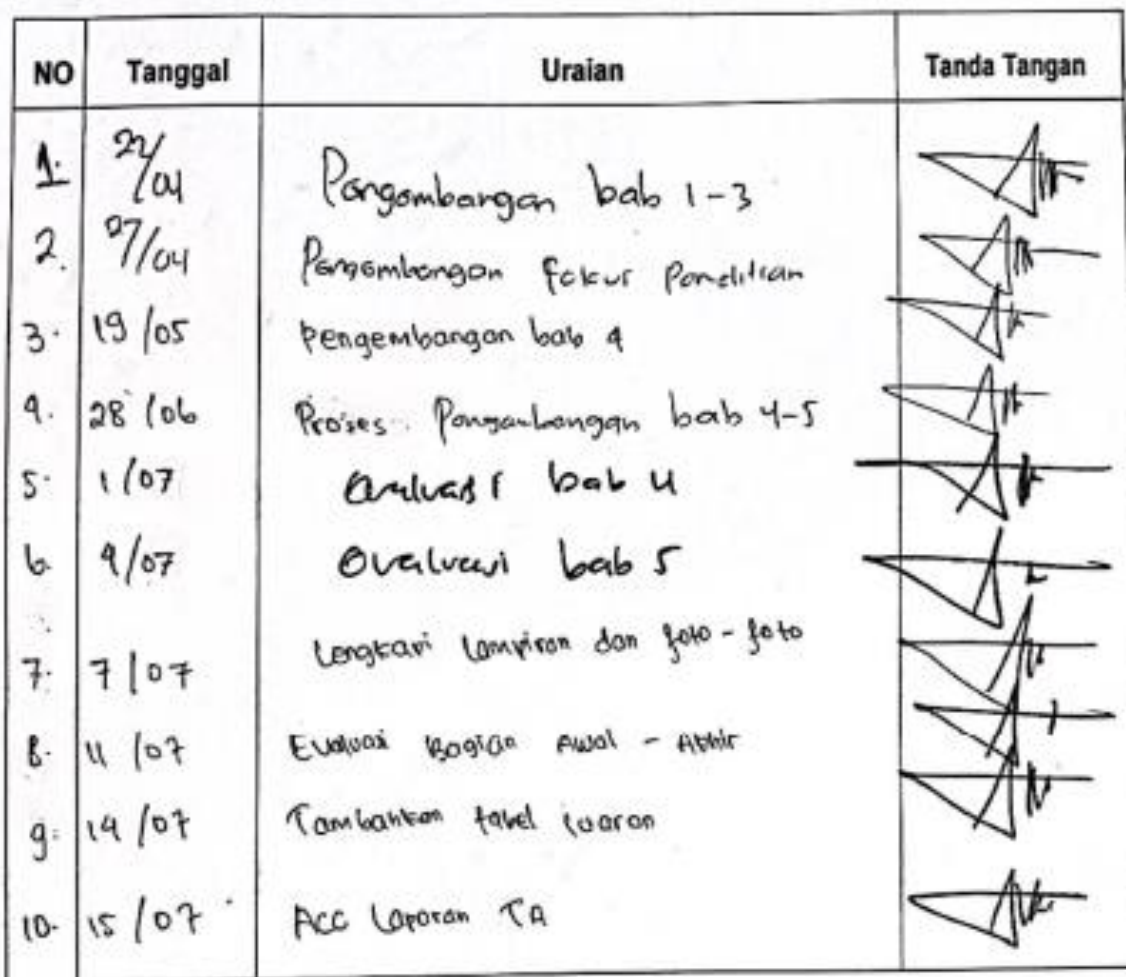 NO Tanggal Uraian Tanda Tangan
1. 22/04 Pengembangan bab 1-3
2. 27/04 Pengembangan fokus Penelitian
3. 19/05 pengembangan bab 4
4. 28/06 Proses Pengembangan bab 4-5
5. 1/07 evaluasi bab 4
6. 4/07 evaluasi bab 5
7. 7/07 Lengkapi lampiran dan foto-foto
8. 11/07 Evaluasi Bagian Awal - Akhir
9. 14/07 Tambahkan tabel luaran
10. 15/07 Acc Laporan TA